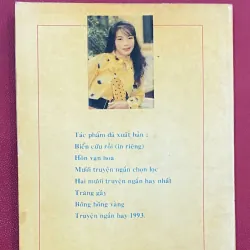 Tác phẩm đã xuất bản :
Biển cứu rỗi (in riêng)
Hồn vạn hoa
Mười truyện ngắn chọn lọc
Hai mươi truyện ngắn hay nhất
Trăng gãy
Bông hồng vàng
Truyện ngắn hay 1993